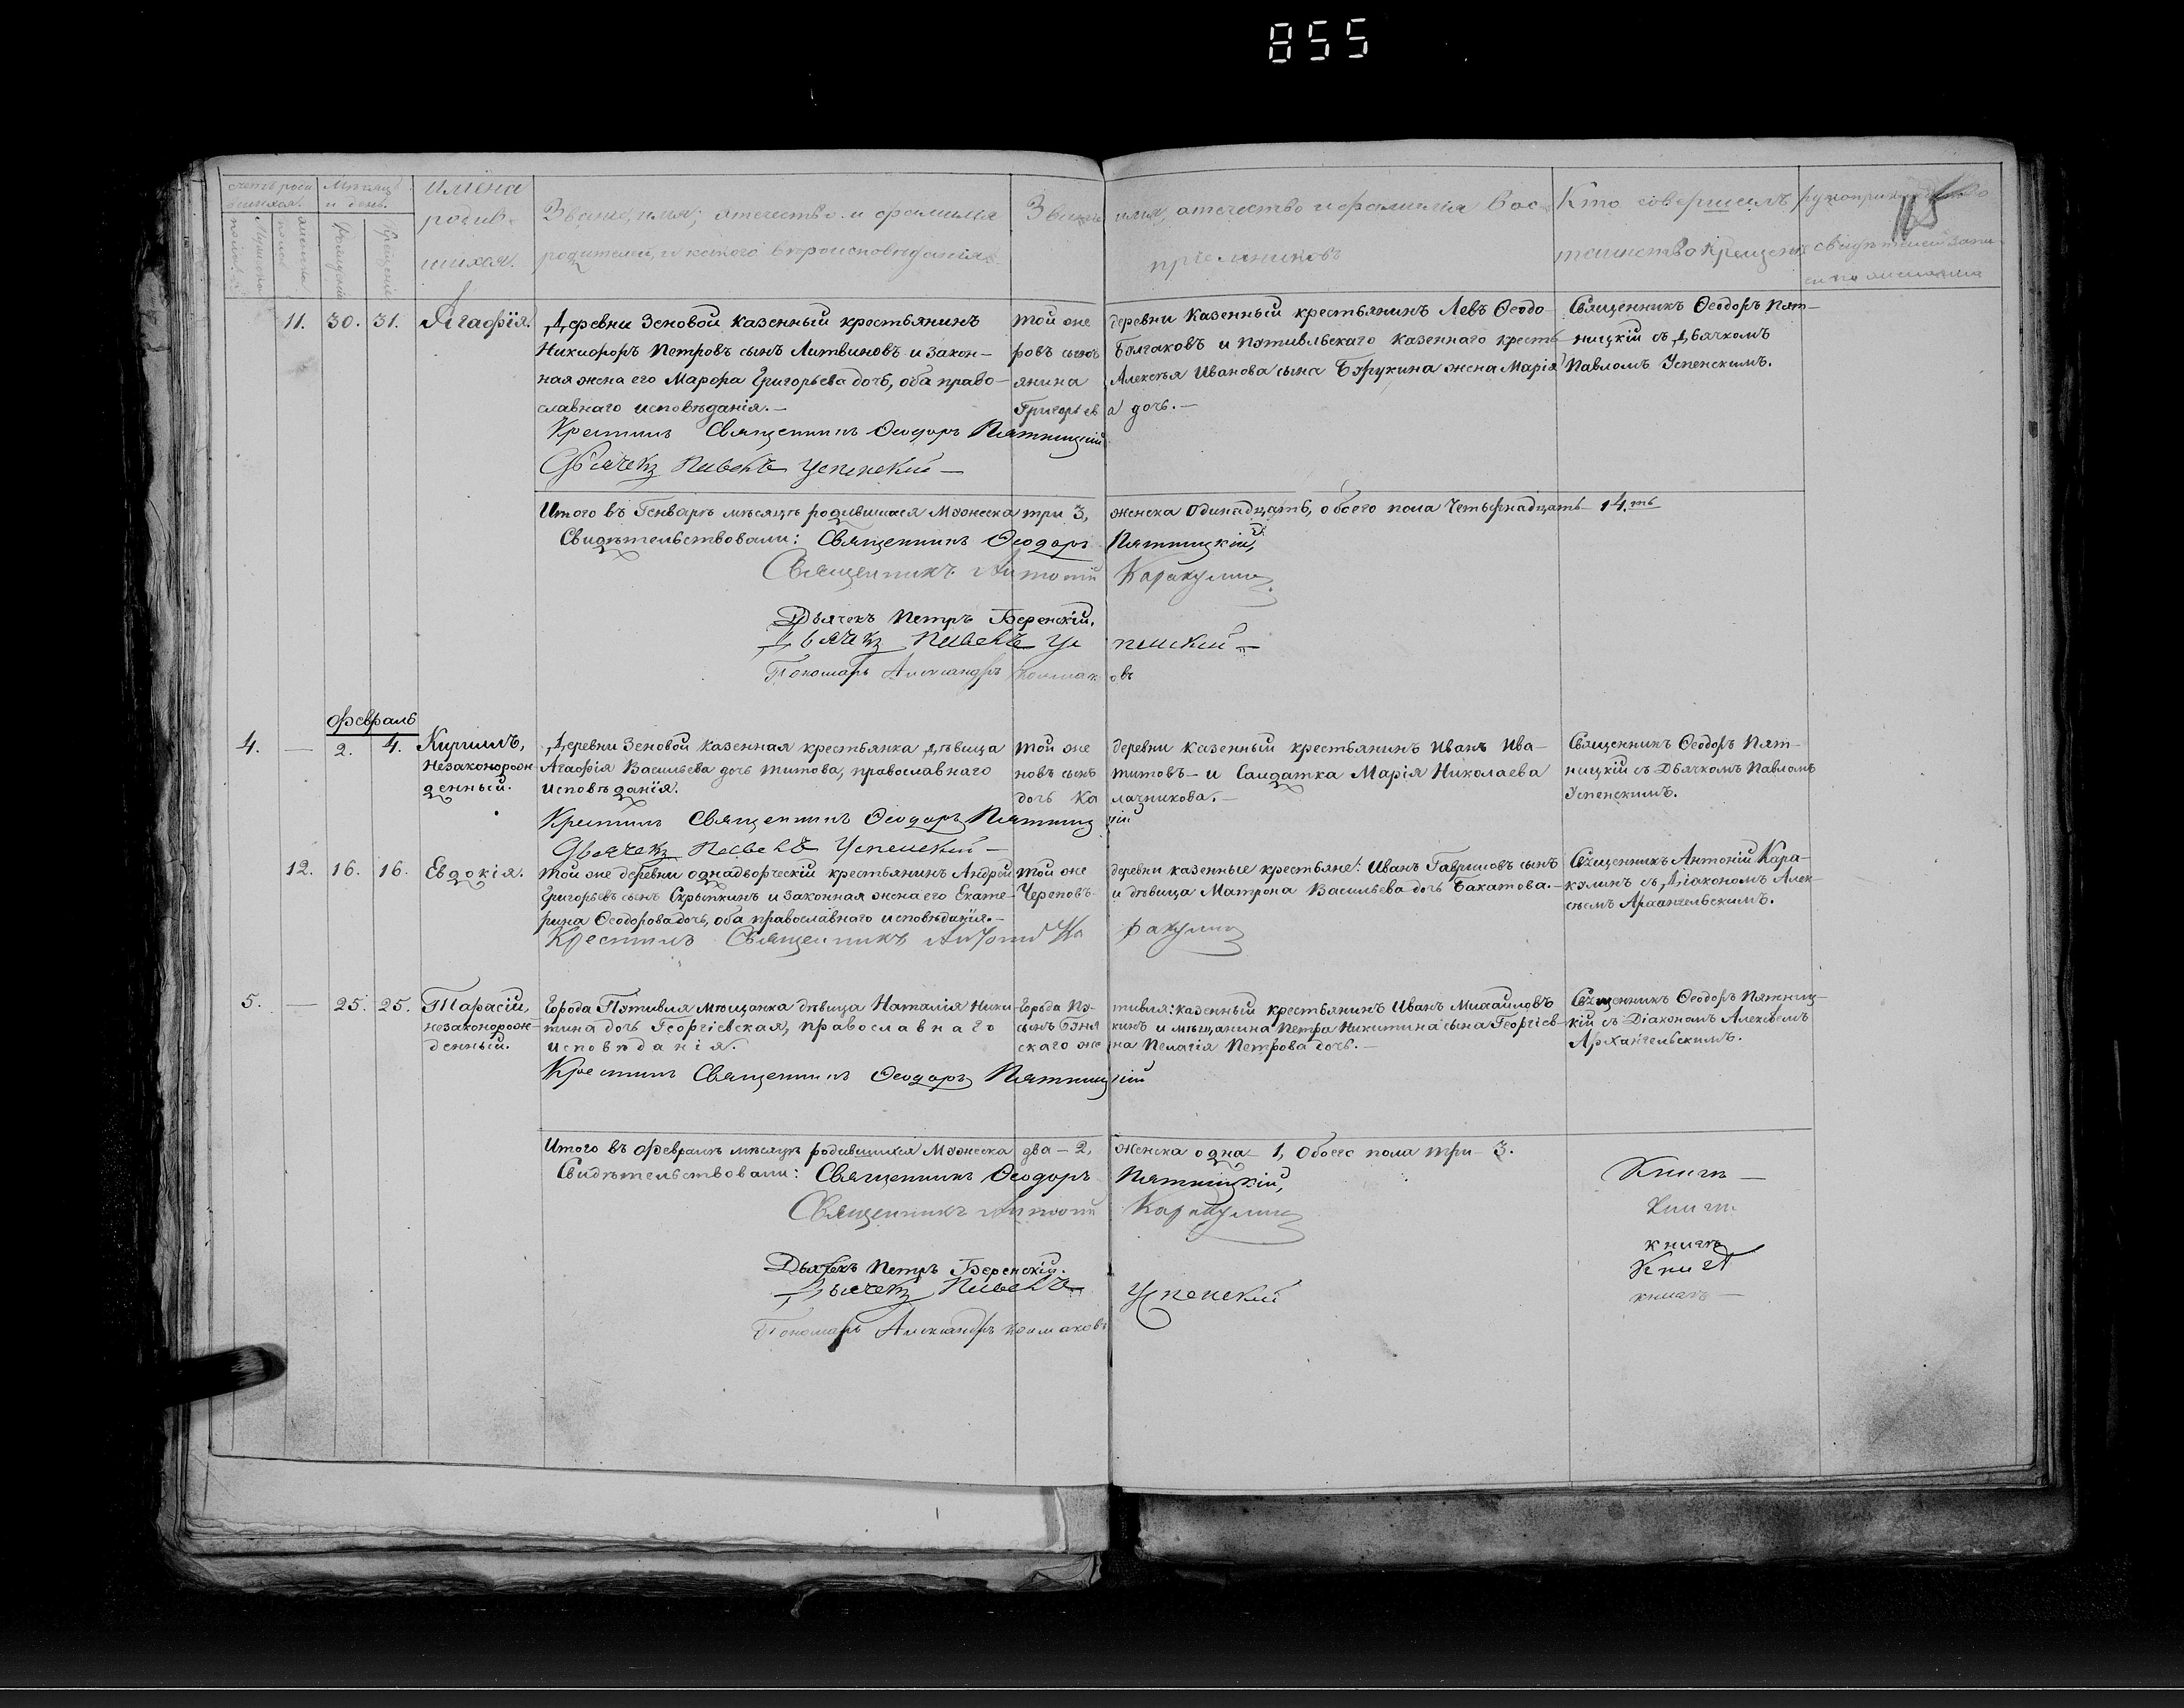 855
счетъ роди
вшихся.
Мѣсяцъ
и день.
имена
родив-
шихся.
Званіе, имя, отечество и фамилія
родителей, и какого вѣроисповѣданія
Званіе имя, отечество и фамилія вос-
пріемниковъ
Кто совершалъ
таинство крещенія
свидѣтелей запи-
115
11. 30. 31. Агафія.
Деревни Зеновой казенный крестьянинъ
Никифоръ Петровъ сынъ Литвиновъ и закон-
ная жена его Марфа Григорьева дочь, оба право-
славнаго исповѣданія.—
Крестилъ Священникъ Ѳеодоръ Пятницкій
Дьячекъ Павелъ Успенскій—
той же деревни казенный крестьянинъ Левъ Ѳеодо-
ровъ сынъ Булгаковъ и путивльскаго казеннаго кресть-
янина Алексѣя Иванова сына Бурукина жена Марія
Григорьева дочь.—
Священникъ Ѳеодоръ Пят-
ницкій съ Дьячкомъ
Павломъ Успенскимъ.
Итого въ Генварѣ мѣсяцѣ родившихся Мужеска три 3, женска одинадцать, обоего пола Четырнадцать 14.ть
Свидѣтельствовали: Священникъ Ѳеодоръ Пятницкій,
Священникъ Антоній Каракулинъ
Дьячекъ Петръ Беренскій,
Дьячекъ Павелъ Успенскій—
Пономарь Александръ Колмаковъ
Февраль
4. — 2. 4. Кириллъ,
незаконорож-
денный.
Деревни Зеновой казенная крестьянка дѣвица
Агафія Васильева дочь Титова, православнаго
исповѣданія.
Крестилъ Священникъ Ѳеодоръ Пятницкій
Дьячекъ Павелъ Успенскій—
той же деревни казенный крестьянинъ Иванъ Ива-
новъ сынъ Титовъ— и Салдатка Марія Николаева
дочь Калачникова.—
Священникъ Ѳеодоръ Пят-
ницкій съ Дьячкомъ Павломъ
Успенскимъ.
12. 16. 16. Евдокія.
той же деревни однадворческій крестьянинъ Андрей
Григорьевъ сынъ Скрыпкинъ и законная жена его Екате-
рина Ѳеодорова дочь, оба православнаго исповѣданія.—
Крестилъ Священникъ Антоній Каракулинъ
той же деревни казенные крестьяне: Иванъ Гавриловъ сынъ
Череповъ и дѣвица Матрона Васильева дочь Бакатова.—
Священникъ Антоній Кара-
кулинъ съ Діакономъ Алек-
сѣемъ Архангельскимъ.
5. — 25. 25. Тарасій,
незаконорож-
денный.
Города Путивля мѣщанка дѣвица Наталія Ники-
тина дочь Георгіевская, православнаго
исповѣданія.
Крестилъ Священникъ Ѳеодоръ Пятницкій
Города Пу-тивля: казенный крестьянинъ Иванъ Михайловъ
сынъ Буня-кинъ и мѣщанина Петра Никитина сына Георгіев-
скаго жена Пелагія Петрова дочь.—
Священникъ Ѳеодоръ Пятниц-
кій съ Діакономъ Алексѣемъ
Архангельскимъ.
Итого въ Февралѣ мѣсяцѣ родившихся Мужеска два— 2, женска одна— 1, обоего пола три— 3.
Свидѣтельствовали: Священникъ Ѳеодоръ Пятницкій,
Священникъ Антоній Каракулинъ
Дьячекъ Петръ Беренскій.
Дьячекъ Павелъ Успенскій
Пономарь Александръ Колмаковъ